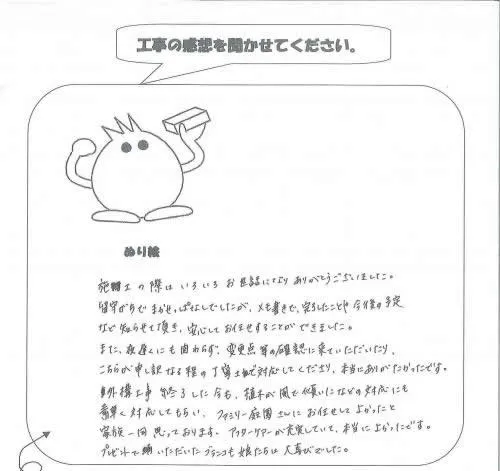 工事の感想を聞かせてください。
ぬり絵
施工の際はいろいろお世話になり ありがとうございました。
留守がちで まかせっぱなしでしたが、メモ書きで、完了したことや今後の予定
など知らせて頂き、安心してお任せすることができました。
また、夜遅くにも関わらず、変更点等の確認に来ていただいたり、
こちらが申し訳なる程の丁寧さで対応してくださり、本当にありがたかったです。
外構工事 終了した今も、植木が風で傾いたなどの対応にも
素早く対応してもらい、ファミリー庭園さんにお任せしてよかったと
家族一同 思っております。アフターケアーが充実していて、本当によかったです。
プレゼントで頂いただいたブランコも娘たちは大喜びでした。